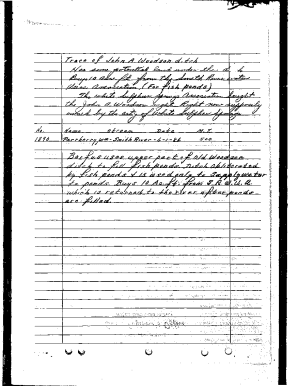 Trace of John A Woodson ditch
Has some potential land under the ditch
Buys 10 acre ft. from the Smith River water
Users Association (For fish ponds)
The White Sulphur Springs Association bought
the John A Woodson Right. Right now supposedly
owned by the city of White Sulphur Springs
No. Name Stream Date M.I.
1890 Smith River 6-1-86 200
uses upper part of old Woodson
ditch to fill fish ponds. Ditch obliterated
by fish ponds & is used only to supply water
to ponds. Buys 10 Ac. ft. from S.R.W.U.A.
which is returned to the river after ponds
are filled.